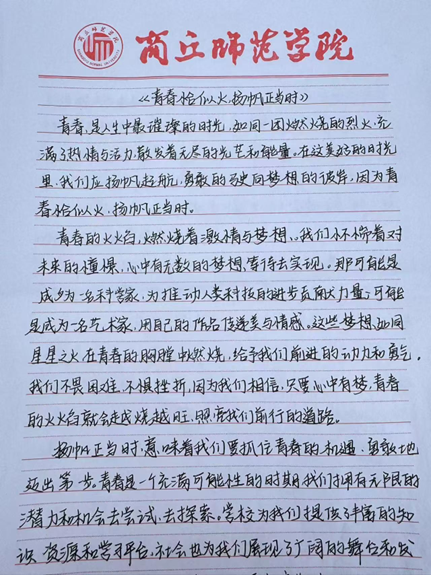 商丘师范学院
《青春恰似火,扬帆正当时》
青春,是人生中最璀璨的时光,如同一团燃烧的烈火,充
满了热情与活力,散发着无尽的光芒和能量。在这美好的时光
里,我们应扬帆起航,勇敢的驶向梦想的彼岸,因为青
春恰似火,扬帆正当时。
青春的火焰,燃烧着激情与梦想、。我们怀揣着对
未来的憧憬,心中有无数的梦想等待去实现。那可能是
成为一名科学家,为推动人类科技的进步贡献力量;可能
是成为一名艺术家,用自己的作品传递美与情感。这些梦想,如同
星星之火,在青春的胸膛中燃烧,给予我们前进的动力和勇气。
我们不畏困难,不惧挫折,因为我们相信,只要心中有梦,青春
的火焰就会越烧越旺,照亮我们前行的道路。
扬帆正当时,意味着我们要抓住青春的机遇,勇敢地
迈出第一步。青春是一个充满可能性的时期,我们拥有无限的
潜力和机会去尝试,去探索。学校为我们提供了丰富的知
识资源和学习平台,社会也为我们展现了广阔的舞台和发